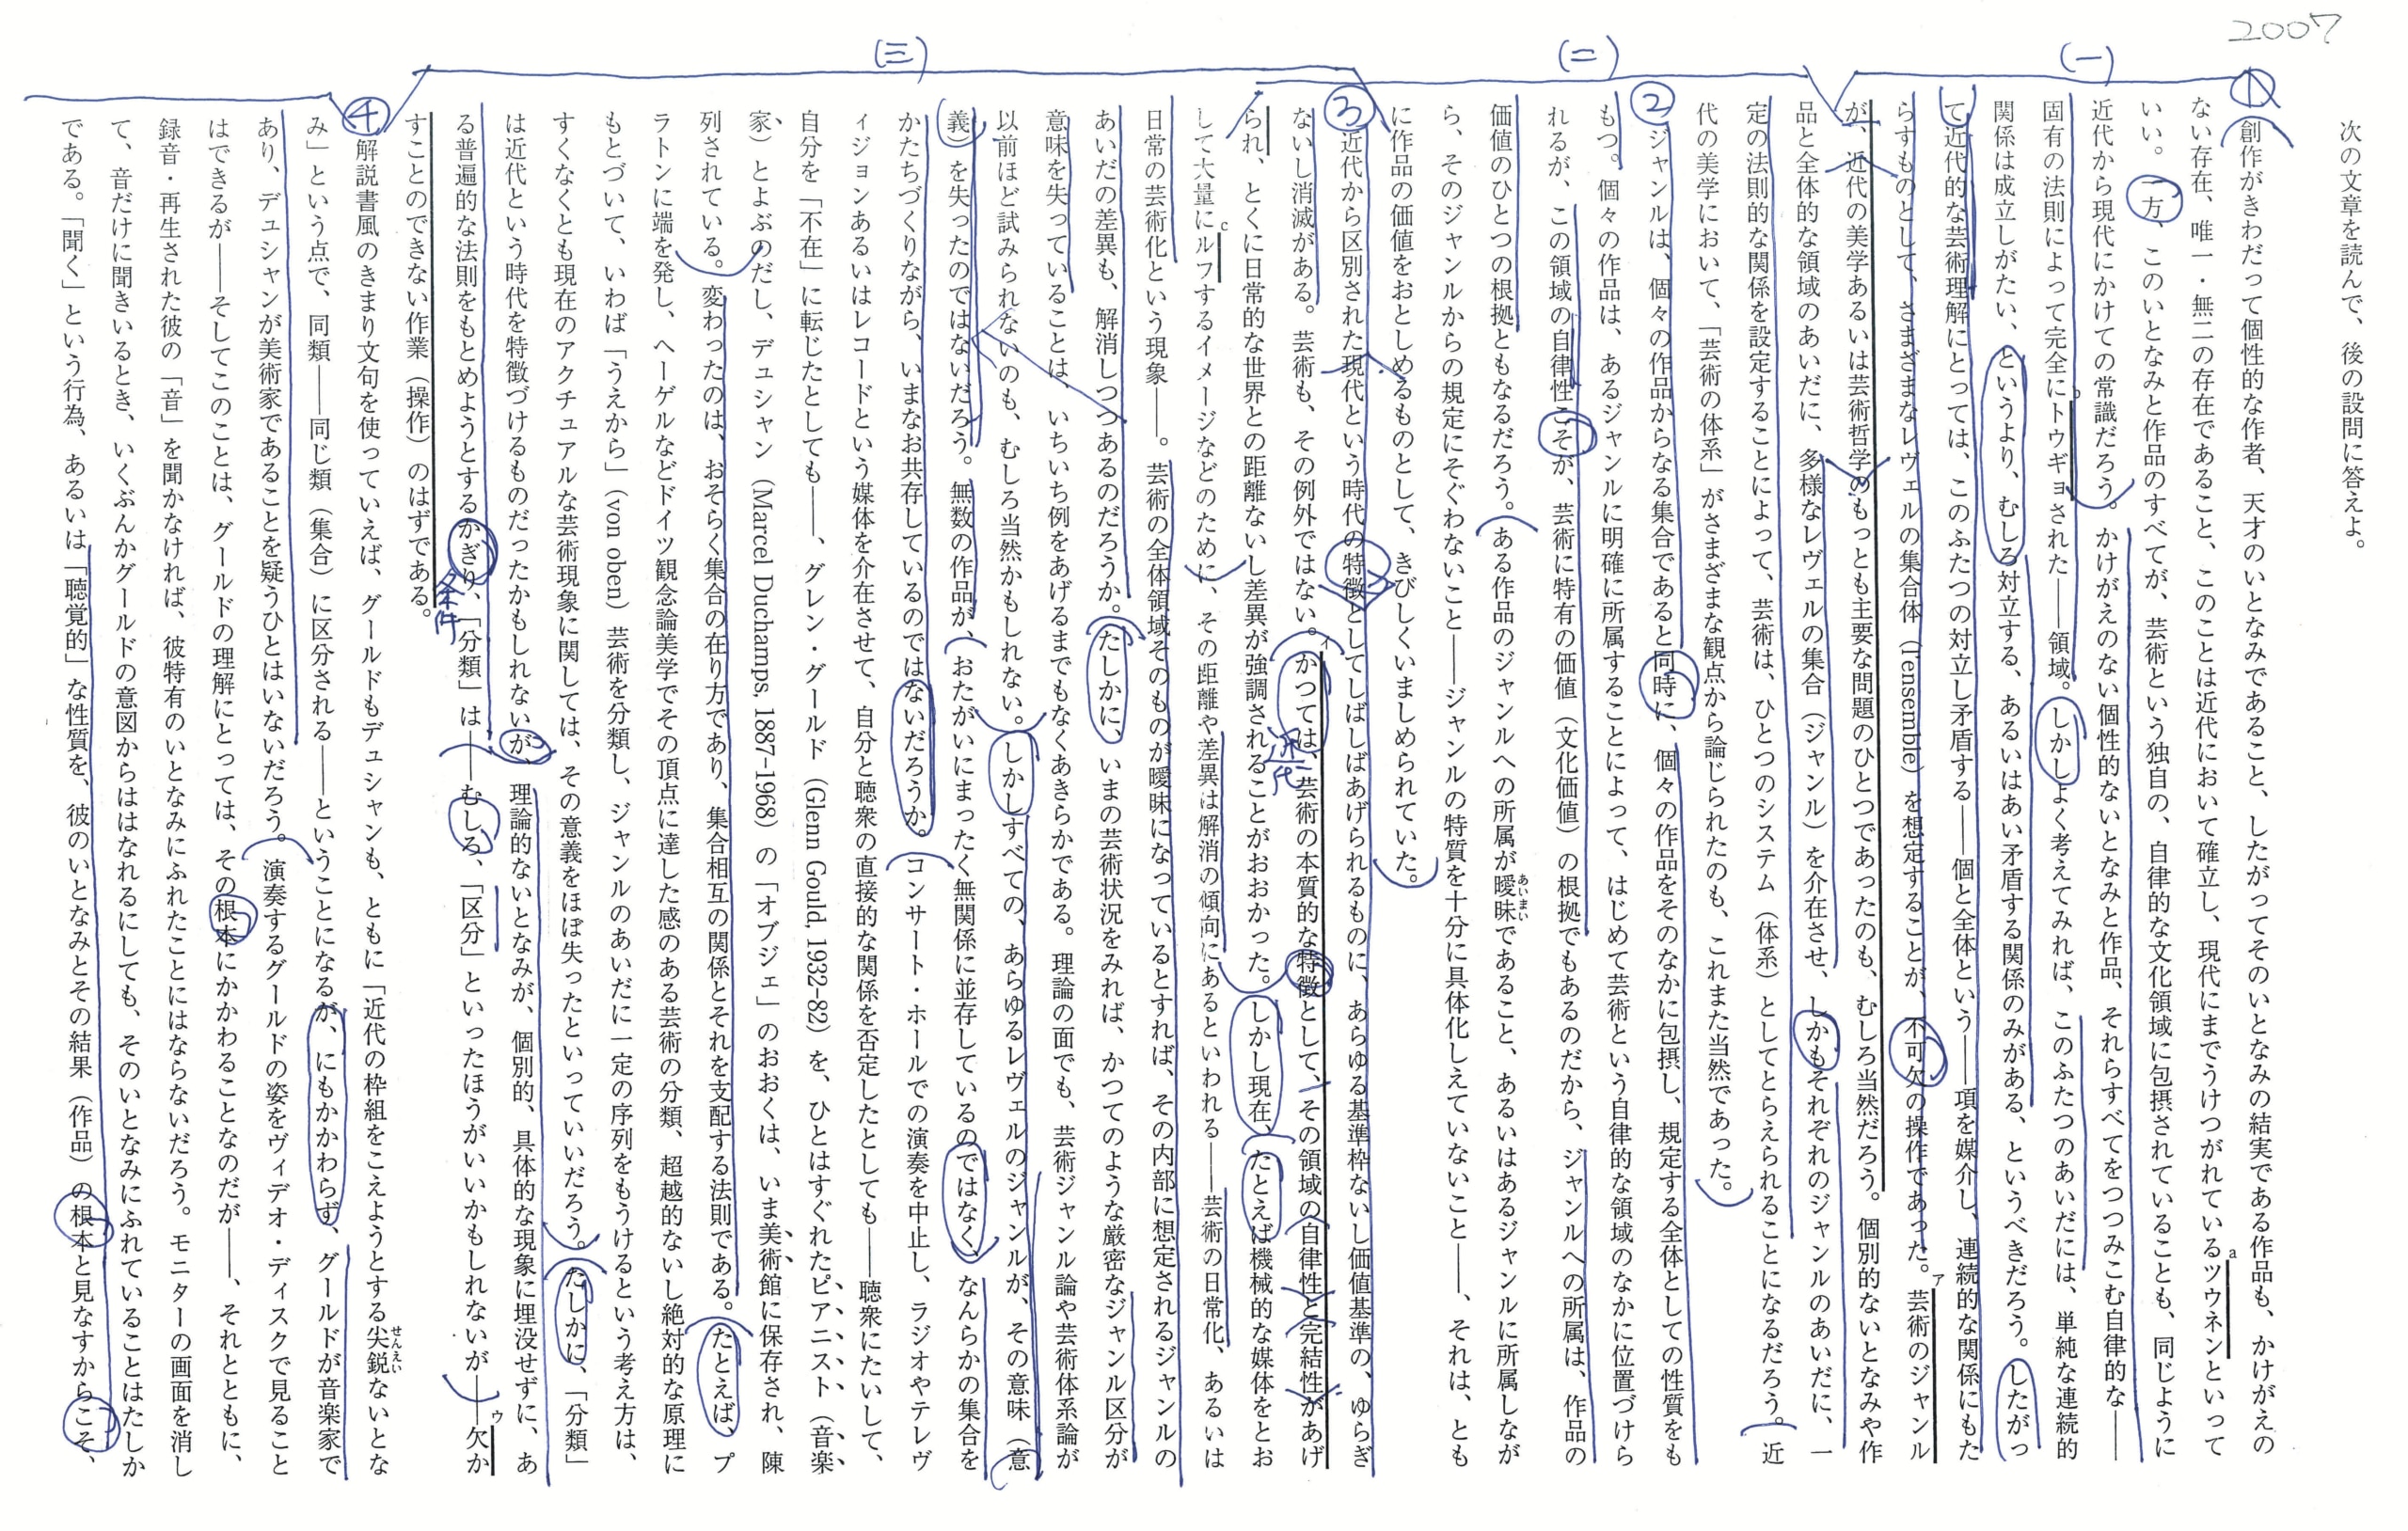 2007
(一)
(二)
(三)
次の文章を読んで、後の設問に答えよ。
①
創作がきわだって個性的な作者、天才のいとなみであること、したがってそのいとなみの結実である作品も、かけがえの
ない存在、唯一・無二の存在であること、このことは近代において確立し、現代にまでうけつがれているツウネンといって
a
いい。一方、このいとなみと作品のすべてが、芸術という独自の、自律的な文化領域に包摂されていることも、同じように
近代から現代にかけての常識だろう。かけがえのない個性的ないとなみと作品、それらすべてをつつみこむ自律的な――
固有の法則によって完全にトウギョされた――領域。しかしよく考えてみれば、このふたつのあいだには、単純な連続的
b
関係は成立しがたい、というより、むしろ対立する、あるいはあい矛盾する関係のみがある、というべきだろう。したがっ
て近代的な芸術理解にとっては、このふたつの対立し矛盾する――個と全体という――項を媒介し、連続的な関係にもた
らすものとして、さまざまなレヴェルの集合体（l'ensemble）を想定することが、不可欠の操作であった。芸術のジャンル
ア
が、近代の美学あるいは芸術哲学のもっとも主要な問題のひとつであったのも、むしろ当然だろう。個別的ないとなみや作
品と全体的な領域のあいだに、多様なレヴェルの集合（ジャンル）を介在させ、しかもそれぞれのジャンルのあいだに、一
定の法則的な関係を設定することによって、芸術は、ひとつのシステム（体系）としてとらえられることになるだろう。近
代の美学において、「芸術の体系」がさまざまな観点から論じられたのも、これまた当然であった。
②
ジャンルは、個々の作品からなる集合であると同時に、個々の作品をそのなかに包摂し、規定する全体としての性質をも
もつ。個々の作品は、あるジャンルに明確に所属することによって、はじめて芸術という自律的な領域のなかに位置づけら
れるが、この領域の自律性こそが、芸術に特有の価値（文化価値）の根拠でもあるのだから、ジャンルへの所属は、作品の
価値のひとつの根拠ともなるだろう。ある作品のジャンルへの所属が曖昧であること、あるいはあるジャンルに所属しなが
あいまい
ら、そのジャンルからの規定にそぐわないこと――ジャンルの特質を十分に具体化しえていないこと――、それは、とも
に作品の価値をおとしめるものとして、きびしくいましめられていた。
③
近代から区別された現代という時代の特徴としてしばしばあげられるものに、あらゆる基準枠ないし価値基準の、ゆらぎ
ないし消滅がある。芸術も、その例外ではない。かつては、芸術の本質的な特徴として、その領域の自律性と完結性があげ
イ
近代
られ、とくに日常的な世界との距離ないし差異が強調されることがおおかった。しかし現在、たとえば機械的な媒体をとお
して大量にルフするイメージなどのために、その距離や差異は解消の傾向にあるといわれる――芸術の日常化、あるいは
c
日常の芸術化という現象――。芸術の全体領域そのものが曖昧になっているとすれば、その内部に想定されるジャンルの
あいだの差異も、解消しつつあるのだろうか。たしかに、いまの芸術状況をみれば、かつてのような厳密なジャンル区分が
意味を失っていることは、いちいち例をあげるまでもなくあきらかである。理論の面でも、芸術ジャンル論や芸術体系論が
以前ほど試みられないのも、むしろ当然かもしれない。しかしすべての、あらゆるレヴェルのジャンルが、その意味（意
義）を失ったのではないだろう。無数の作品が、おたがいにまったく無関係に並存しているのではなく、なんらかの集合を
かたちづくりながら、いまなお共存しているのではないだろうか。コンサート・ホールでの演奏を中止し、ラジオやテレヴ
ィジョンあるいはレコードという媒体を介在させて、自分と聴衆の直接的な関係を否定したとしても――聴衆にたいして、
自分を「不在」に転じたとしても――、グレン・グールド（Glenn Gould, 1932-82）を、ひとはすぐれたピアニスト（音楽
家）とよぶのだし、デュシャン（Marcel Duchamps, 1887-1968）の「オブジェ」のおおくは、いま美術館に保存され、陳
列されている。変わったのは、おそらく集合の在り方であり、集合相互の関係とそれを支配する法則である。たとえば、プ
ラトンに端を発し、ヘーゲルなどドイツ観念論美学でその頂点に達した感のある芸術の分類、超越的ないし絶対的な原理に
もとづいて、いわば「うえから」（von oben）芸術を分類し、ジャンルのあいだに一定の序列をもうけるという考え方は、
すくなくとも現在のアクチュアルな芸術現象に関しては、その意義をほぼ失ったといっていいだろう。たしかに、「分類」
は近代という時代を特徴づけるものだったかもしれないが、理論的ないとなみが、個別的、具体的な現象に埋没せずに、あ
る普遍的な法則をもとめようとするかぎり、「分類」は――むしろ、「区分」といったほうがいいかもしれないが――欠か
条件
ウ
すことのできない作業（操作）のはずである。
④
解説書風のきまり文句を使っていえば、グールドもデュシャンも、ともに「近代の枠組をこえようとする尖鋭ないとな
せんえい
み」という点で、同類――同じ類（集合）に区分される――ということになるが、にもかかわらず、グールドが音楽家で
あり、デュシャンが美術家であることを疑うひとはいないだろう。演奏するグールドの姿をヴィデオ・ディスクで見ること
はできるが――そしてこのことは、グールドの理解にとっては、その根本にかかわることなのだが――、それとともに、
録音・再生された彼の「音」を聞かなければ、彼特有のいとなみにふれたことにはならないだろう。モニターの画面を消し
て、音だけに聞きいるとき、いくぶんかグールドの意図からははなれるにしても、そのいとなみにふれていることはたしか
である。「聞く」という行為、あるいは「聴覚的」な性質を、彼のいとなみとその結果（作品）の根本と見なすからこそ、